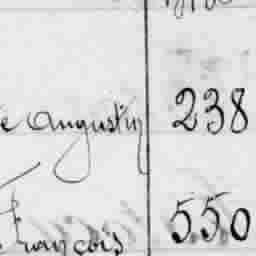 e Augustin 238
François 550